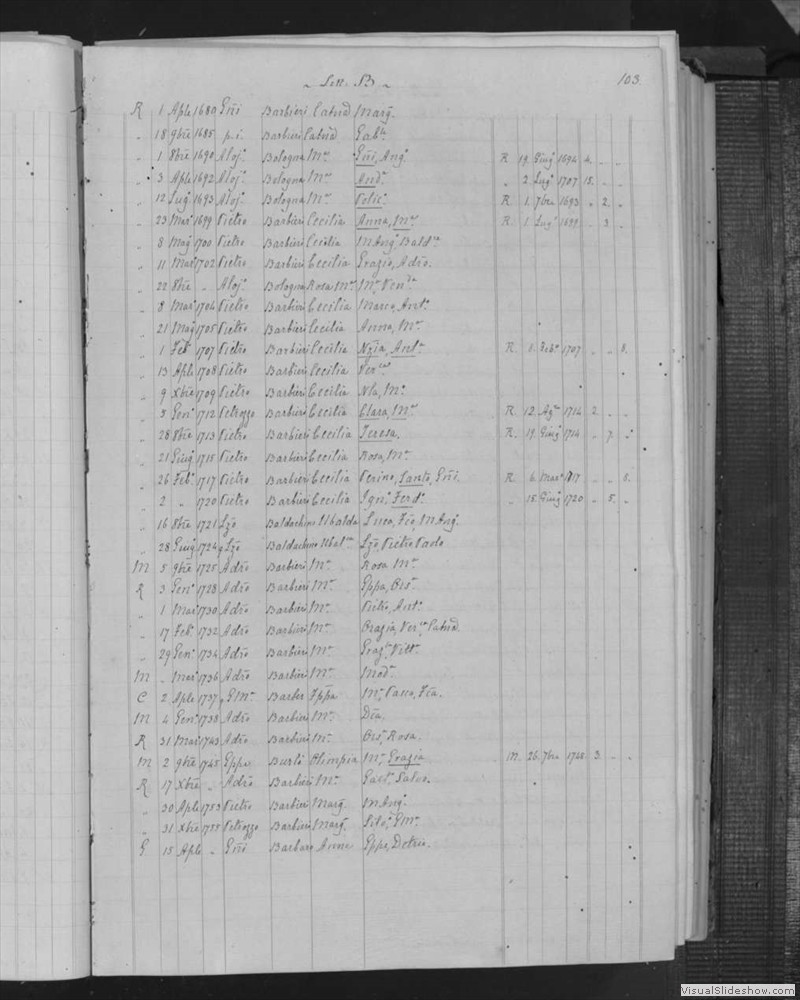 ~ Lett. B ~ 103
R 1 Aple 1680 Gñi Barbieri Catnã Marg.
" 18 9bre 1685 p.i. Barbieri Catnã Gab.
" 1 8bre 1690 Aloj. Bologna Mª Gñi, Ang. R 19. Giug. 1694 4. " "
" 3 Aple 1692 Aloj. Bologna Mª And. " 2. Lug. 1707 15. " "
" 12 Lug. 1693 Aloj. Bologna Mª Felic. R. 1. 7bre 1693 " 2. "
" 23 Mar. 1699 Pietro Barbieri Cecilia Anna, Mª R. 1. Lug. 1699 " 3 "
" 8 Mag. 1700 Pietro Barbieri Cecilia M Ang. Bald.
" 11 Mar. 1702 Pietro Barbieri Cecilia Grazio, Adrõ.
" 22 8bre " Aloj. Bologna Rosa Mª Mª Ven.
" 8 Mar. 1704 Pietro Barbieri Cecilia Marco, Ant.
" 21 Mag. 1705 Pietro Barbieri Cecilia Anna, Mª
" 1 Feb. 1707 Pietro Barbieri Cecilia Ant. R. 1. Feb. 1707 " " 8.
" 13 Aple 1708 Pietro Barbieri Cecilia
" 9 Xbre 1709 Pietro Barbieri Cecilia Mª
" 5 Gen. 1712 Petrozzo Barbieri Cecilia Clara, Mª R. 12. Ag. 1714 2. " "
" 28 8bre 1713 Pietro Barbieri Cecilia Teresa. R. 19. Giug. 1714 " 7. "
" 21 Giug. 1715 Pietro Barbieri Cecilia Rosa, Mª
" 26 Feb. 1717 Pietro Barbieri Cecilia Perino, Santo, Gñi R. 6. Mar. 1717 " " 8.
" 2 " 1720 Pietro Barbieri Cecilia Ign. Ferd. " 15. Giug. 1720 " 5. "
" 16 8bre 1721 Lzõ Baldachino Ubalda Luca, Fco, M Ang.
" 28 Giug. 1724 Lzõ Baldachino Ubal. Lzõ, Pietro Paolo
M 5 9bre 1725 Adrõ Barbieri Mª Rosa Mª
R 3 Gen. 1728 Adrõ Barbieri Mª Gppa, Ors.
" 1 Mar. 1730 Adrõ Barbieri Mª Pietro, Ant.
" 17 Feb. 1732 Adrõ Barbieri Mª Orazia, Ver. Catnã.
" 29 Gen. 1734 Adrõ Barbieri Mª Graz. Vitt.
M " Mar. 1736 Adrõ Barbieri Mª Mod.
C 2 Aple 1737 G Mª Barber Gppa Mª
M 4 Gen. 1738 Adrõ Barbieri Mª
R 31 Mar. 1743 Adrõ Barbieri Mª Ors. Rosa
M 2 9bre 1745 Gppe Burlò Olimpia Mª, Grazia M. 26. 7bre 1748 3. " "
R 17 Xbre " Adrõ Barbieri Mª Gaet. Salvo.
" 30 Aple 1753 Pietro Barbieri Marg. M Ang.
" 31 Xbre 1755 Petrozzo Barbieri Marg. G Mª
G 15 Aple " Gñi Barbaro Anna Gppe,
VisualSlideshow.com